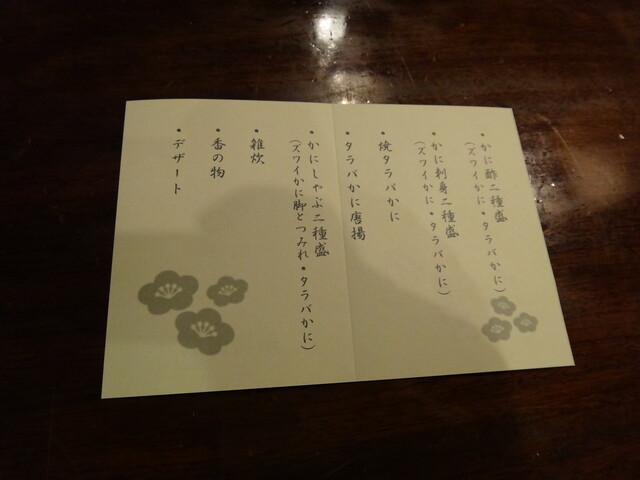 ・かに酢二種盛
（ズワイかに・タラバかに）
・かに刺身二種盛
（ズワイかに・タラバかに）
・焼タラバかに
・タラバかに唐揚
・かにしゃぶ二種盛
（ズワイかに脚とつみれ・タラバかに）
・雑炊
・香の物
・デザート